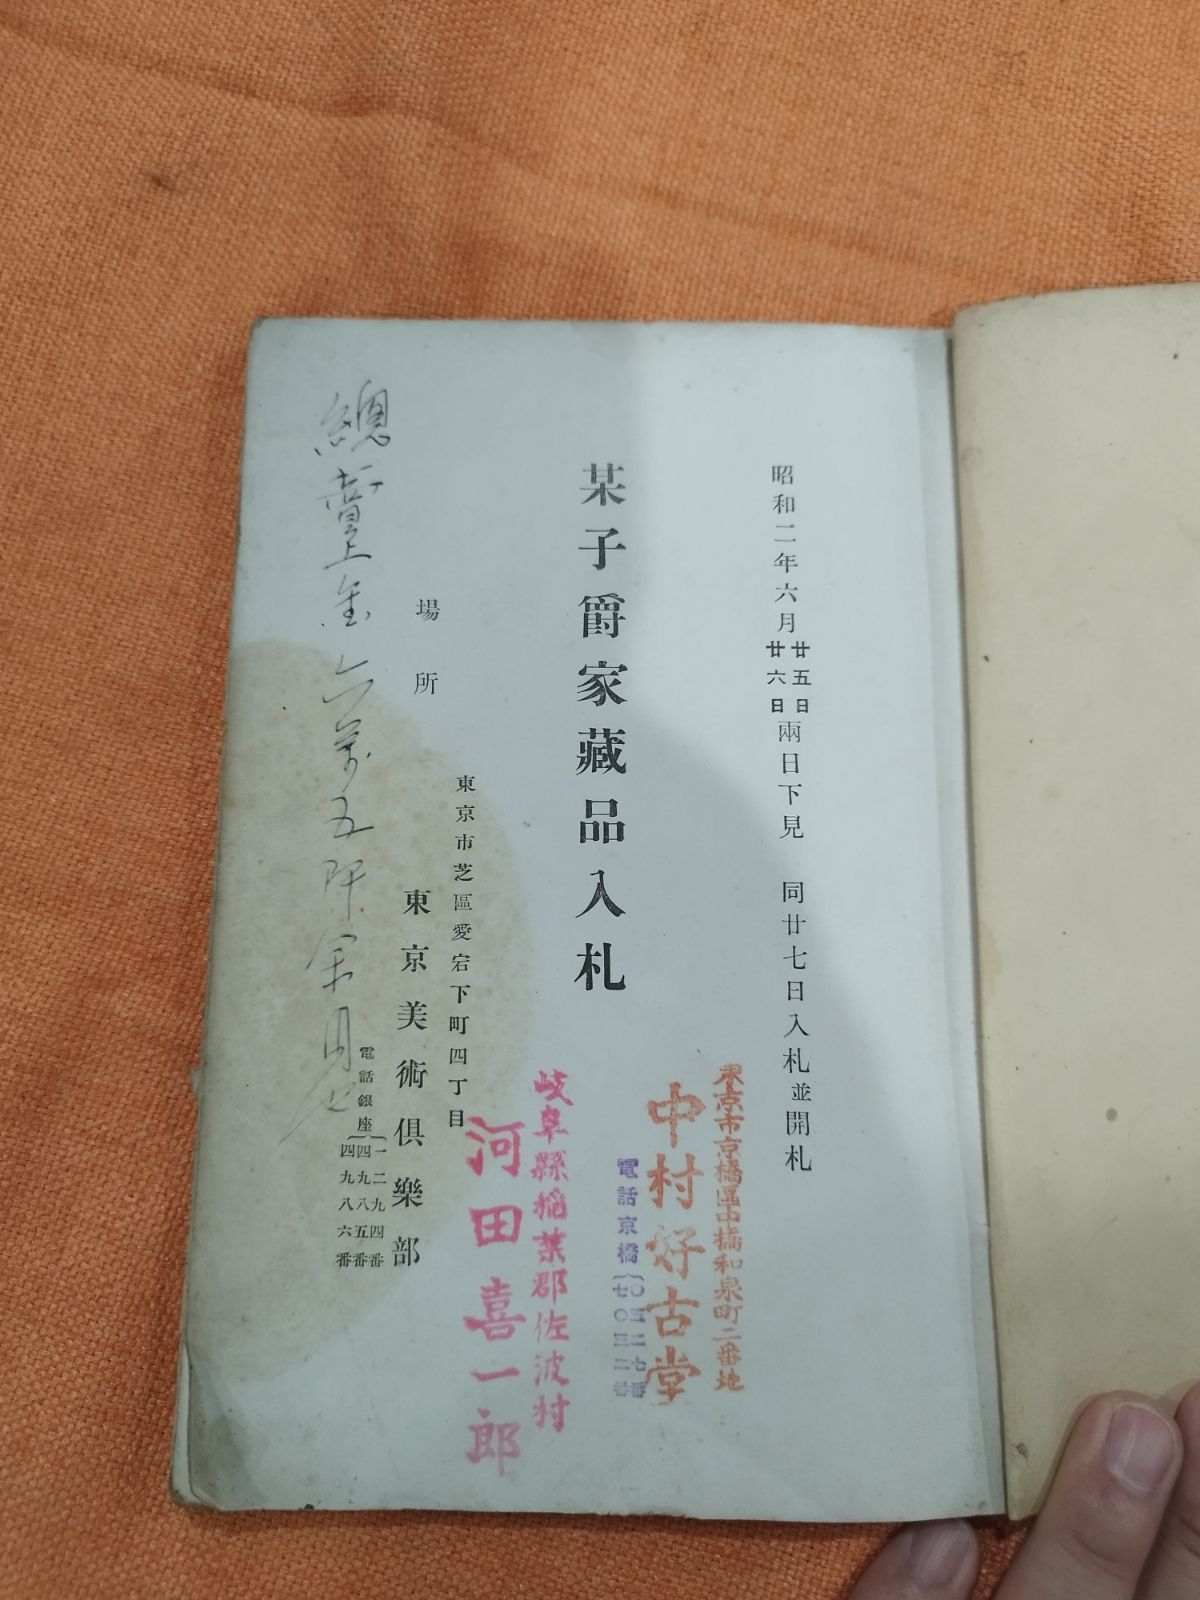 昭和二年六月廿五日廿六日兩日下見 同廿七日入札並開札
某子爵家藏品入札
東京市芝區愛宕下町四丁目
場所
東京美術俱樂部
電話銀座
一二九四番
四九八五番
四九八六番
總賣上金六萬五阡
東京市京橋區中橋和泉町二番地
中村好古堂
電話京橋
七〇三二番
岐阜縣稲葉郡佐波村
河田喜一郎